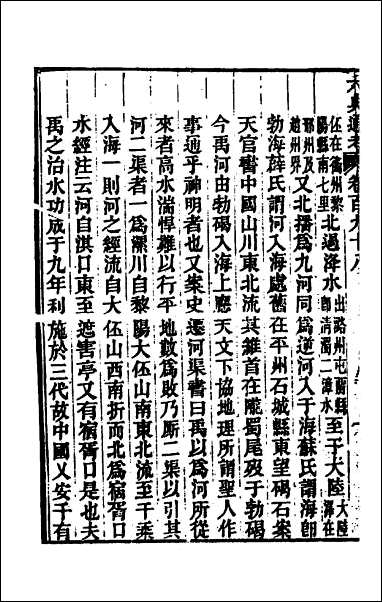 六典通考 卷百九十八
伾在衞州黎陽縣南七里北過降水出潞州屯留縣卽清濁二漳水至于大陸大陸澤在
邢州及趙州界又北播爲九河同爲逆河入于海蘇氏謂海卽
勃海薛氏謂河入海處舊在平州石城縣東望碣石案
天官書中國山川東北流其維首在隴蜀尾歿于勃碣
今禹河由勃碣入海上應天文下協地理所謂聖人作
事通乎神明者也又案史遷河渠書曰禹以爲河所從
來者高水湍悍難以行平地數爲敗乃厮二渠以引其
河二渠者一爲漯川自黎陽大伾山南東北流至千乘
入海一則河之經流自大伾山西南折而北爲宿胥口
水經注云河自淇口東至遮害亭又有宿胥口是也夫
禹之治水功成于九年利施於三代故中國乂安千有